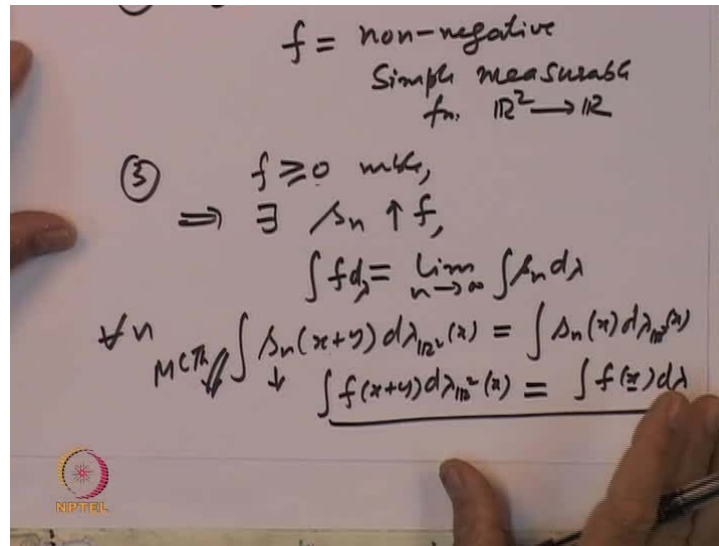 f = non-negative
Simple measurable
fn. ℝ² → ℝ
③ f ≥ 0 mble,
⇒ ∃ sₙ ↑ f,
∫ f dλ = lim n→∞ ∫ sₙ dλ
∀ n ∫ sₙ(x+y) dλ_ℝ²(x) = ∫ sₙ(x) dλ_ℝ²(x)
MCTh ⇓ ↓ ∫ f(x+y) dλ_ℝ²(x) = ∫ f(x) dλ
NPTEL